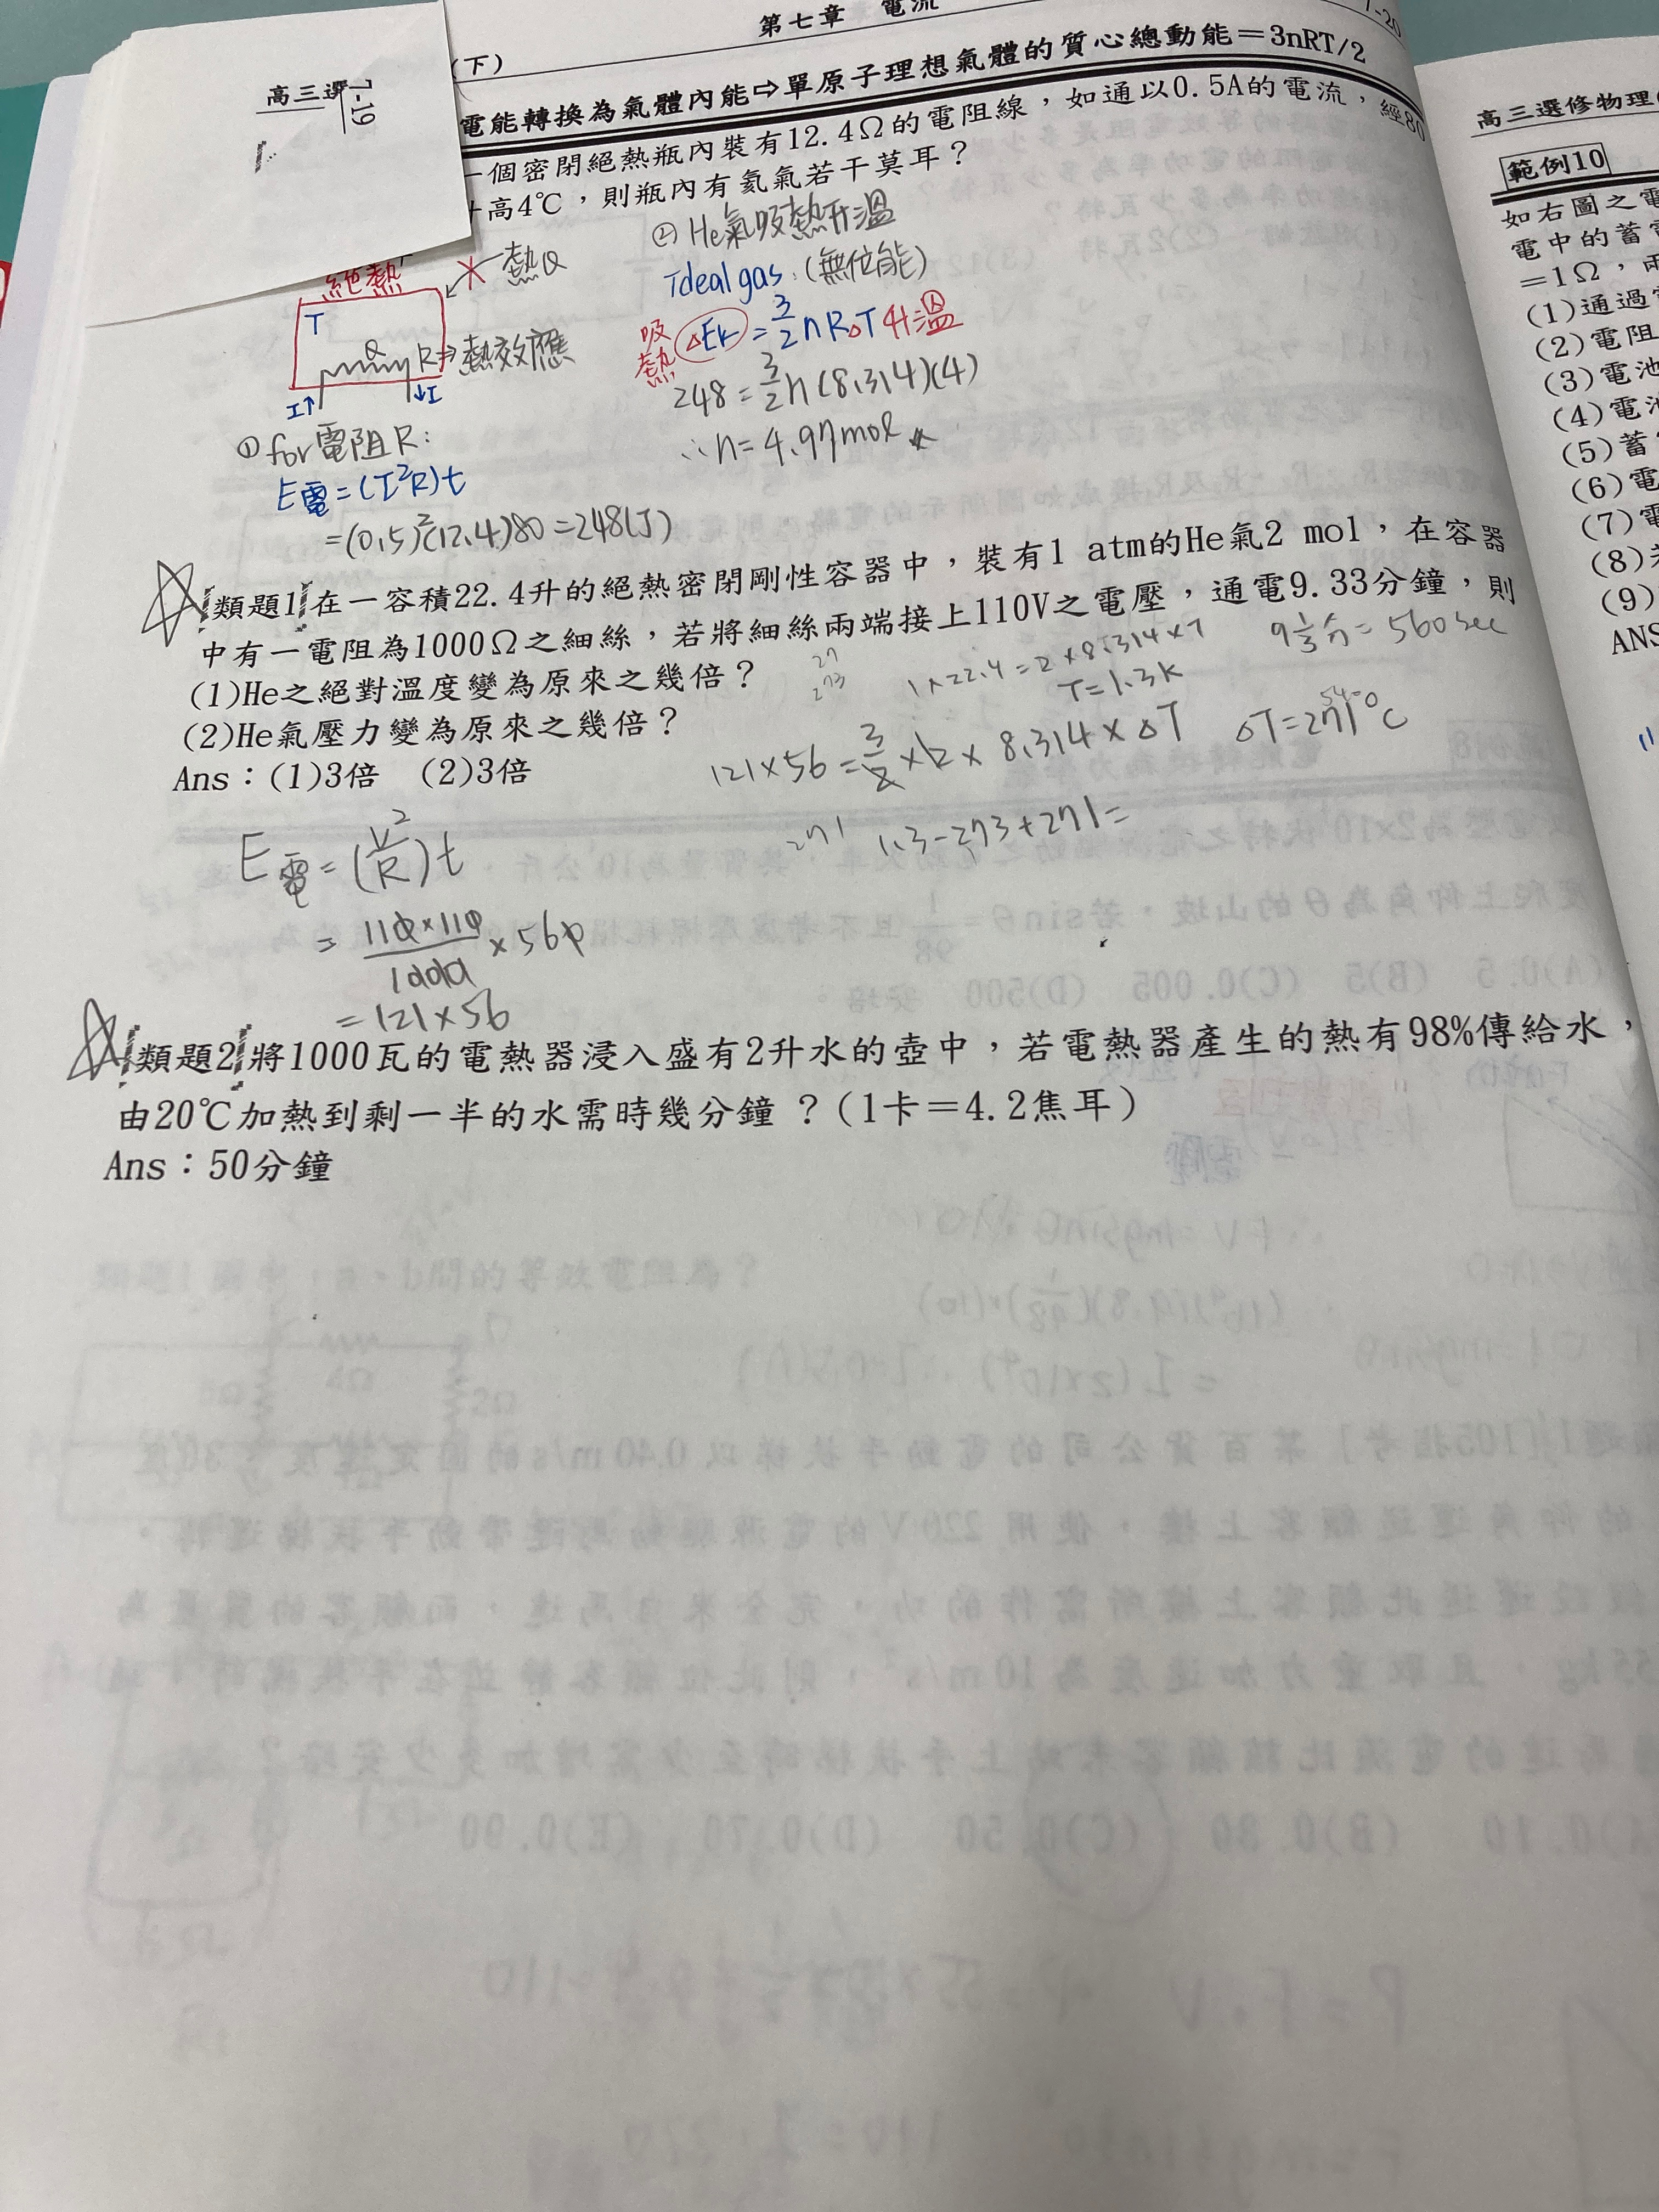 第七章 電流
7-20
(下)
高三選
7-19
電能轉換為氣體內能⇨單原子理想氣體的質心總動能＝3nRT/2
一個密閉絕熱瓶內裝有12.4Ω的電阻線，如通以0.5A的電流，經80
高4℃，則瓶內有氦氣若干莫耳？
② He氣吸熱升溫
Ideal gas：(無位能)
吸熱 ΔEk = 3/2 n R ΔT 升溫
248 = 3/2 n (8.314)(4)
∴ n = 4.97 mol
絕熱
熱Q
T
Q
R ⇒ 熱效應
I↑
↓I
① for 電阻R:
E電 = (I²R)t
= (0.5)²(12.4)80 = 248(J)
類題1 在一容積22.4升的絕熱密閉剛性容器中，裝有1 atm的He氣2 mol，在容器
中有一電阻為1000Ω之細絲，若將細絲兩端接上110V之電壓，通電9.33分鐘，則
9 1/3 分 = 560 sec
(1)He之絕對溫度變為原來之幾倍？
27
273
1×22.4 = 2×8.314×T
T = 1.3K
(2)He氣壓力變為原來之幾倍？
121×56 = 3/2 × 2 × 8.314 × ΔT
ΔT = 271°C
Ans：(1)3倍 (2)3倍
271
1.3-273+271=
E電 = (V²/R)t
= 110×110/1000 × 560
= 121×56
類題2 將1000瓦的電熱器浸入盛有2升水的壺中，若電熱器產生的熱有98%傳給水，
由20℃加熱到剩一半的水需時幾分鐘？(1卡＝4.2焦耳)
Ans：50分鐘
高三選修物理
範例10
如右圖之電
電中的蓄電
＝1Ω，兩
(1)通過電
(2)電阻
(3)電池
(4)電池
(5)蓄
(6)電
(7)電
(8)
(9)
ANS